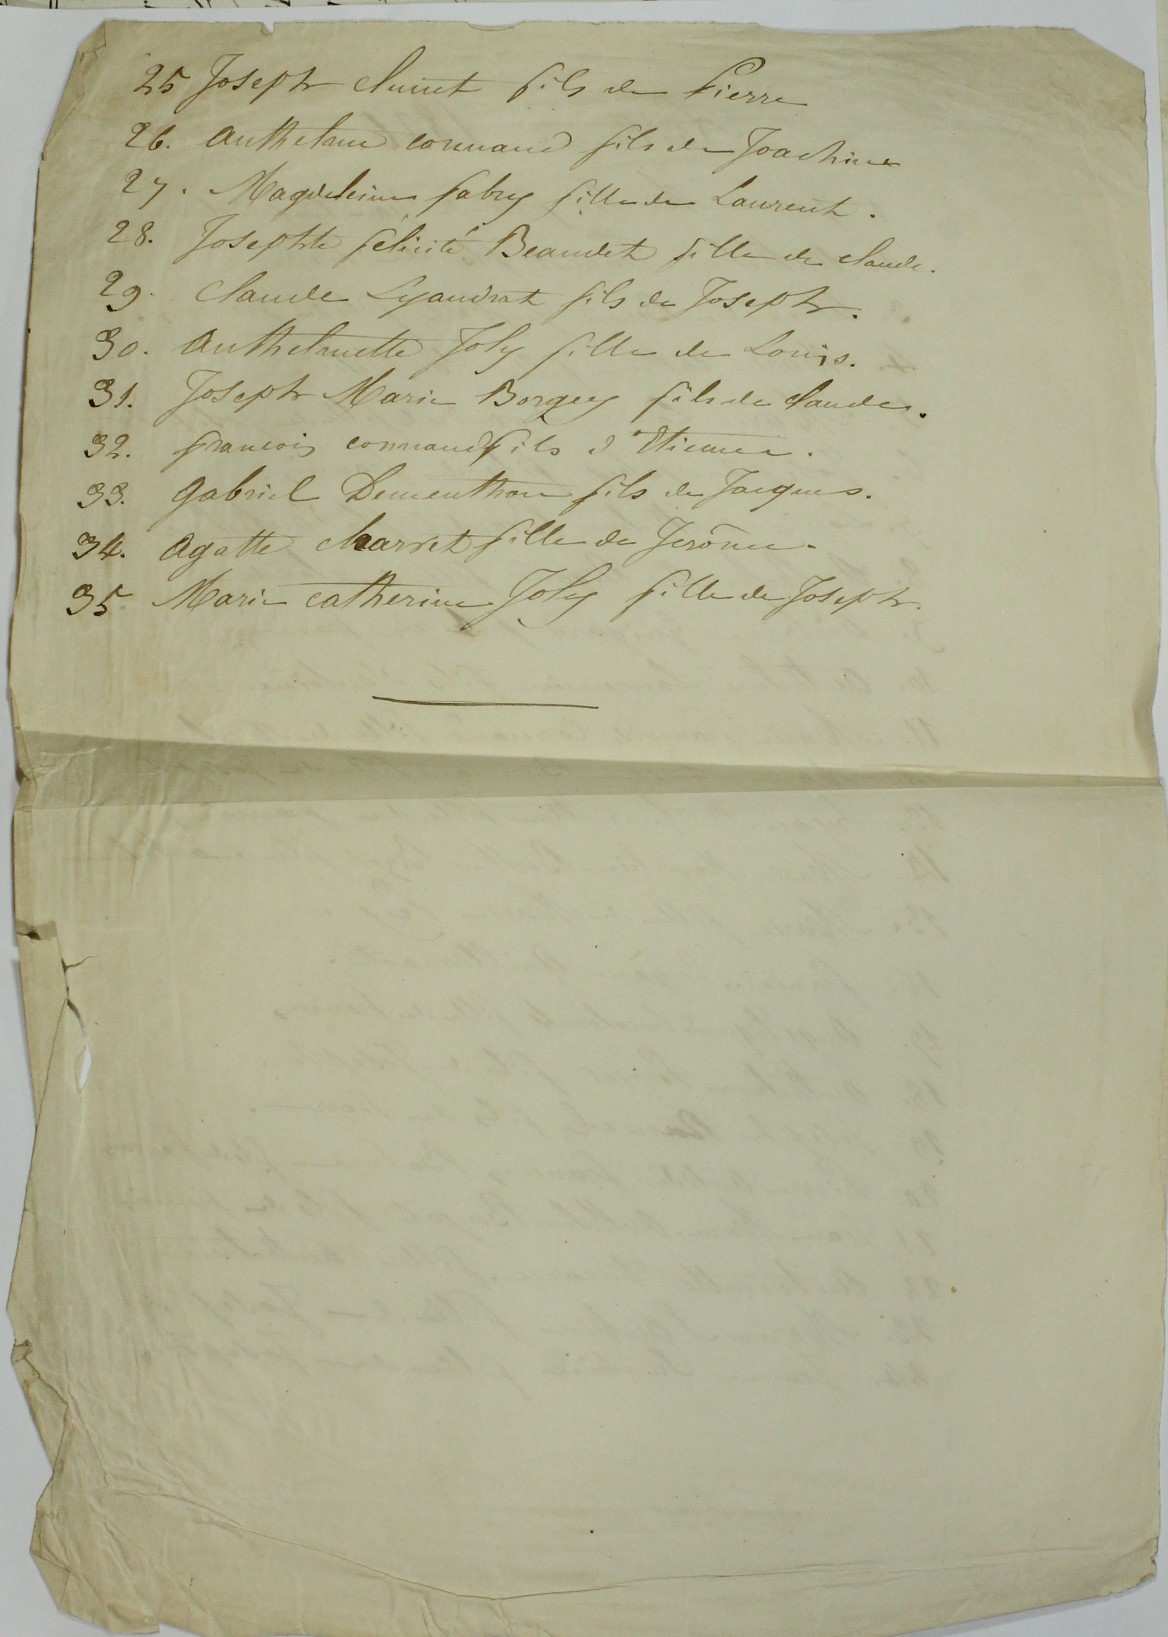 25 Joseph Clunet fils de Pierre
26. Anthelme connand fils de Joachim
27. Magdeleine fabry fille de Laurent.
28. Josephte félicité Beaudet fille de Claude.
29. Claude Lyaudrat fils de Joseph.
30. Anthelmette Joly fille de Louis.
31. Joseph Marie Borgey fils de Claude.
32. francois connand fils d'Etienne.
33. gabriel Dementhon fils de Jacques.
34. agatte charvet fille de Jerôme.
35 Marie catherine Joly fille de Joseph.